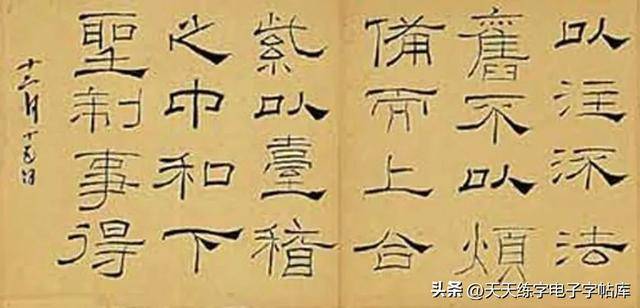 以注流法
舊不以煩
備而上合
紫以臺稽
之中和下
聖制事得
十二月十五日
头条 @天天练字电子字帖库